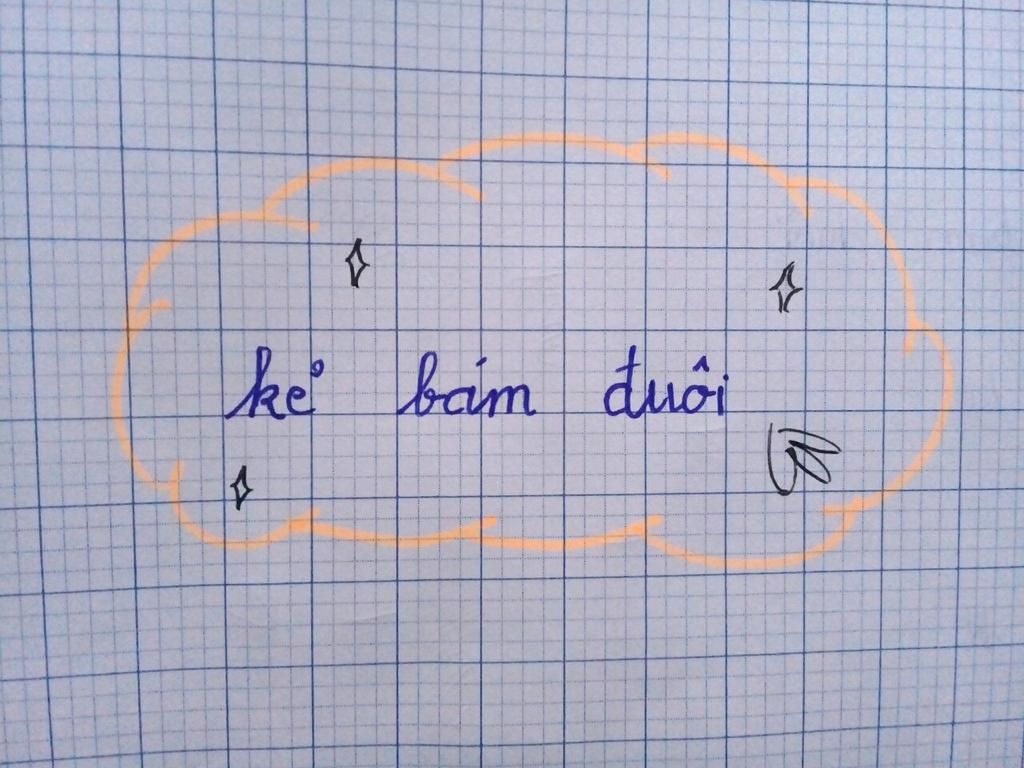 kẻ bám đuôi